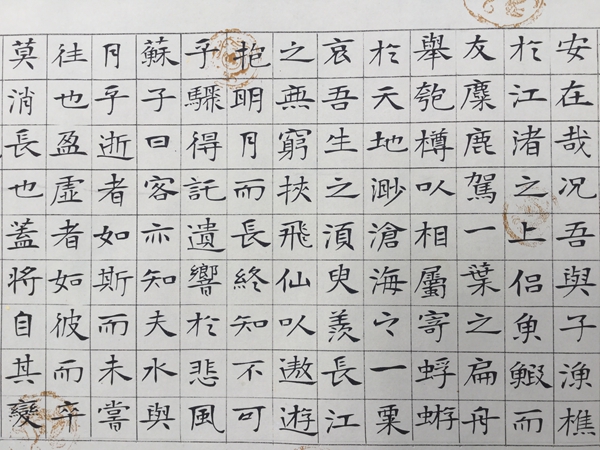 安在哉况吾與子漁樵
於江渚之上侣魚鰕而
友麋鹿駕一葉之扁舟
舉匏樽以相屬寄蜉蝣
於天地渺滄海之一粟
哀吾生之須臾羨長江
之無窮挾飛仙以遨遊
抱明月而長終知不可
乎驟得託遺響於悲風
蘇子曰客亦知夫水與
月乎逝者如斯而未嘗
往也盈虛者如彼而卒
莫消長也蓋將自其變